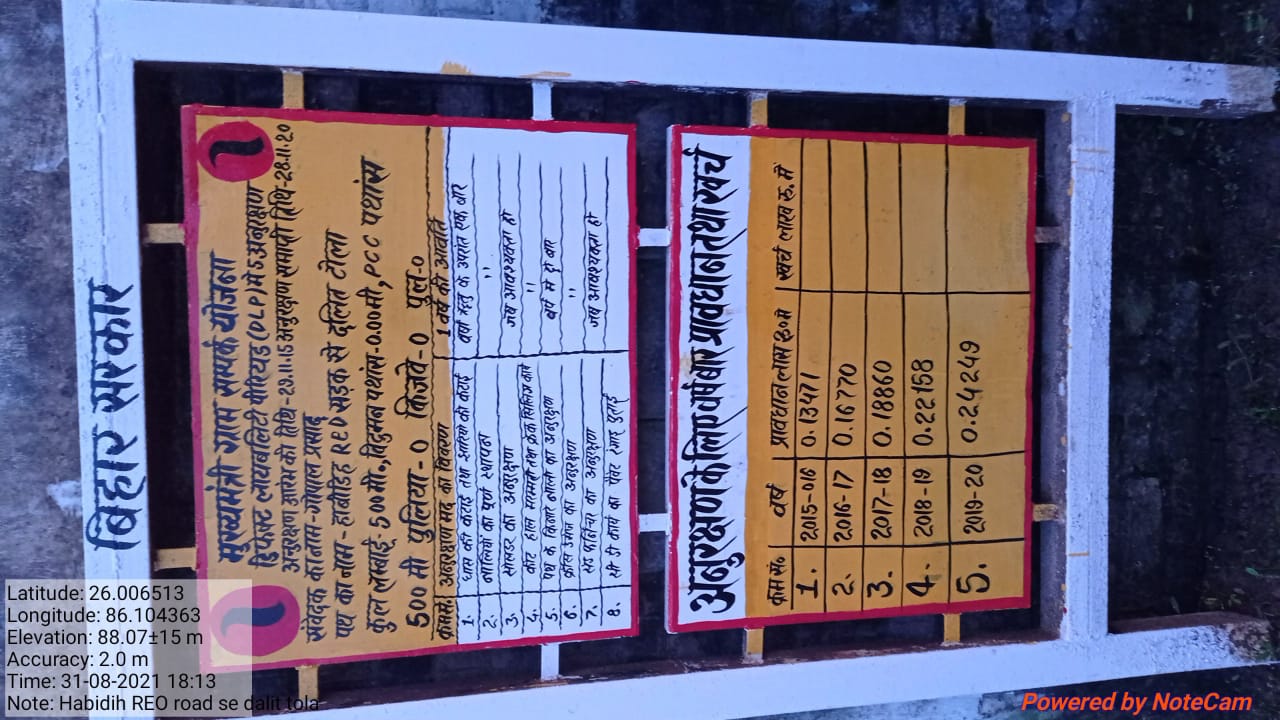 बिहार सरकार
मुख्यमंत्री ग्राम सम्पर्क योजना
डिफेक्ट लायबलिटी पीरियड (DLP) में 5 अनुरक्षण
अनुरक्षण आरंभ की तिथि-29.11.15 अनुरक्षण समाप्ती तिथि-28.11.20
संवेदक का नाम-गोपाल प्रसाद
पथ का नाम- हाबीडिह REO सड़क से दलित टोला
कुल लम्बाई-500मी, विटुमन पथांस-0.00मी, PCC पथांस
500 मी पुलिया-0 कॉजवे-0 पुल-0
क्र.सं. अनुरक्षण मद का विवरण 1 वर्ष की आवर्ति
1. घास की कटाई तथा झारियों की कटाई वर्षा ऋतु के उपरांत एक बार
2. नालियों का पूर्ण स्थापना "
3. सोल्डर का अनुरक्षण जब आवश्यकता हो
4. वर्ष में दो बार
5. "
6. का अनुरक्षण
7. का अनुरक्षण जब आवश्यकता हो
8.
अनुरक्षण के लिए वर्षबार प्रावधान तथा खर्च
क्रम सं० वर्ष प्रावधान लाख रु० में खर्च लाख रु. में
1. 2015-016 0.13471
2. 2016-17 0.16770
3. 2017-18 0.18860
4. 2018-19 0.22158
5. 2019-20 0.24249
Latitude: 26.006513
Longitude: 86.104363
Elevation: 88.07±15 m
Accuracy: 2.0 m
Time: 31-08-2021 18:13
Note: Habidih REO road se dalit tola
Powered by NoteCam